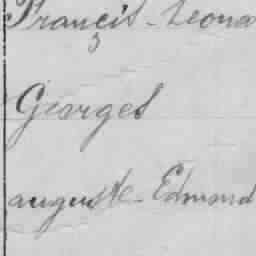 Francis - Leona
Georges
auguste - Edmond